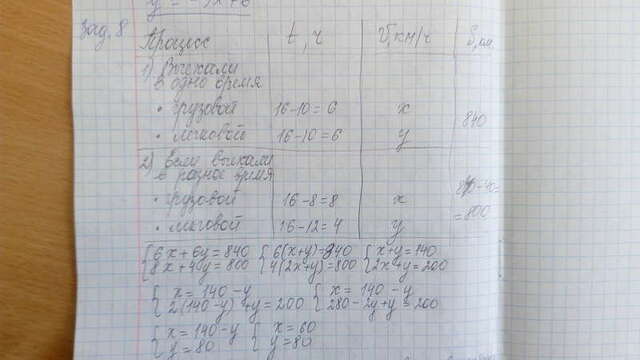 y = -3x+6
Зад. 8
Процесс t, ч V, км/ч S, км.
1) Выехали
в одно время
• грузовой 16-10=6 x
• легковой 16-10=6 y 840
2) Если выехали
в разное время
• грузовой 16-8=8 x 840-40=
• легковой 16-12=4 y =800
{6x+6y=840 {6(x+y)=840 {x+y=140
{8x+4y=800 {4(2x+y)=800 {2x+y=200
{x=140-y {x=140-y
{2(140-y)+y=200 {280-2y+y=200
{x=140-y {x=60
{y=80 {y=80